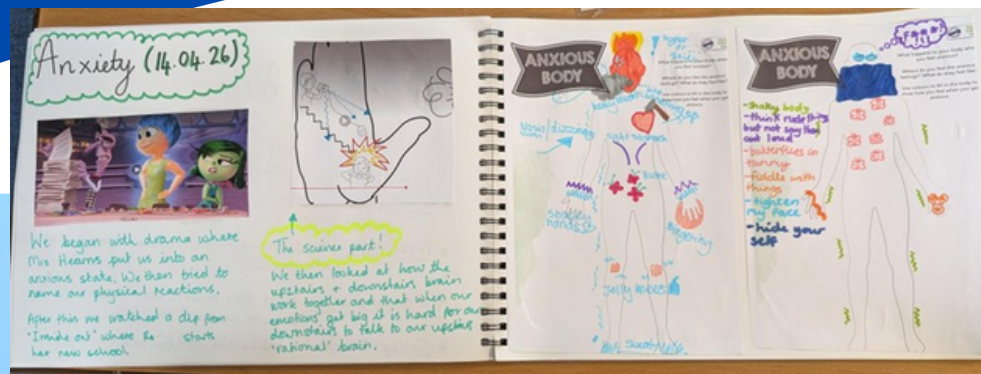 Anxiety (14.04.26)
We began with drama where
Mrs Hearns put us into an
anxious state. We then tried to
name our physical reactions.
After this we watched a clip from
'Inside out' where starts
her new school.
The science part!
We then looked at how the
upstairs + downstairs brain
work together and that when our
emotions get big it is hard for our
downstairs to talk to our upstairs
'rational' brain.
ANXIOUS
BODY
tight stomach
shakey
hands
fidgeting
jelly knees
Sweaty
ANXIOUS
BODY
What happens to your body when
you feel anxious?
Where do you feel the anxious
feelings? What do they feel like?
-shaky body
-think rude things
but not say them
out loud
-butterflies in
tummy
-fiddle with
things
-tighten
my face
-hide your
self